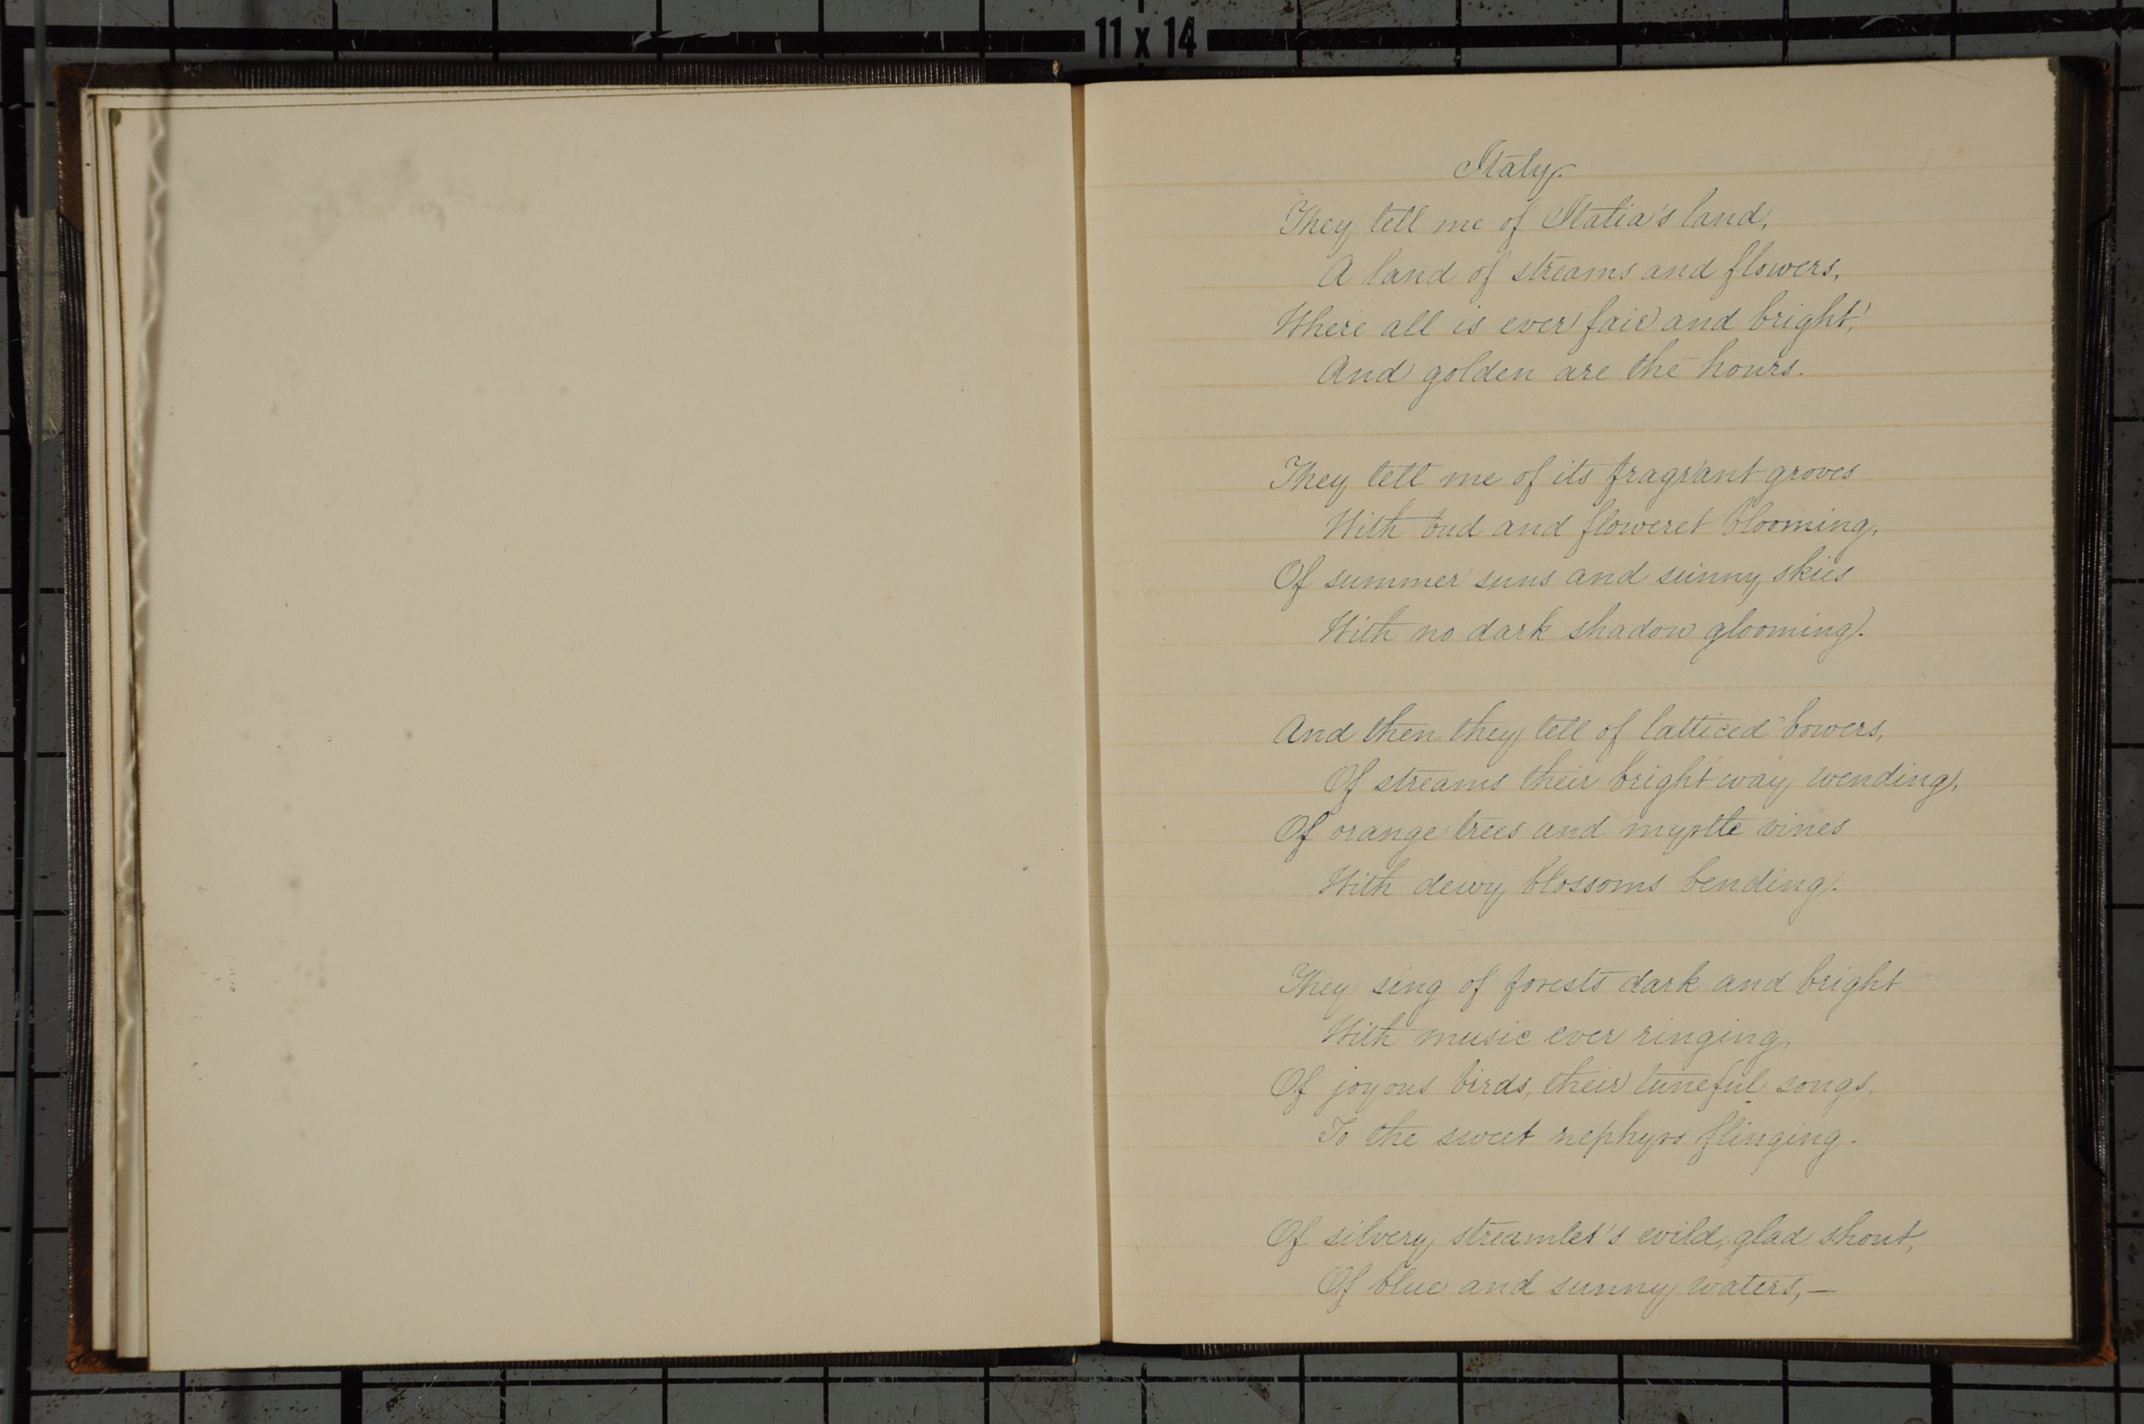 11 x 14
Italy.
They tell me of Italia's land,
A land of streams and flowers,
Where all is ever fair and bright,
And golden are the hours.
They tell me of its fragrant groves
With bud and floweret blooming,
Of summer suns and sunny skies
With no dark shadow glooming.
And then they tell of latticed bowers,
Of streams their bright way wending,
Of orange trees and myrtle vines
With dewy blossoms bending.
They sing of forests dark and bright
With music ever ringing,
Of joyous birds, their tuneful songs
To the sweet zephyrs flinging.
Of silvery streamlet's wild, glad shout,
Of blue and sunny waters,—